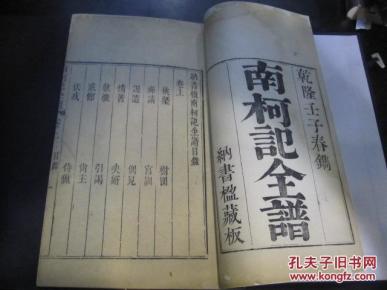 乾隆壬子春鐫
南柯記全譜
納書楹藏板
納書楹南柯記全譜目錄
卷上
俠槩
樹國
禪請
宮訓
謾遣
偶見
情著
決婿
就徵
引謁
貳館
尚主
伏戎
侍獵
孔夫子旧书网